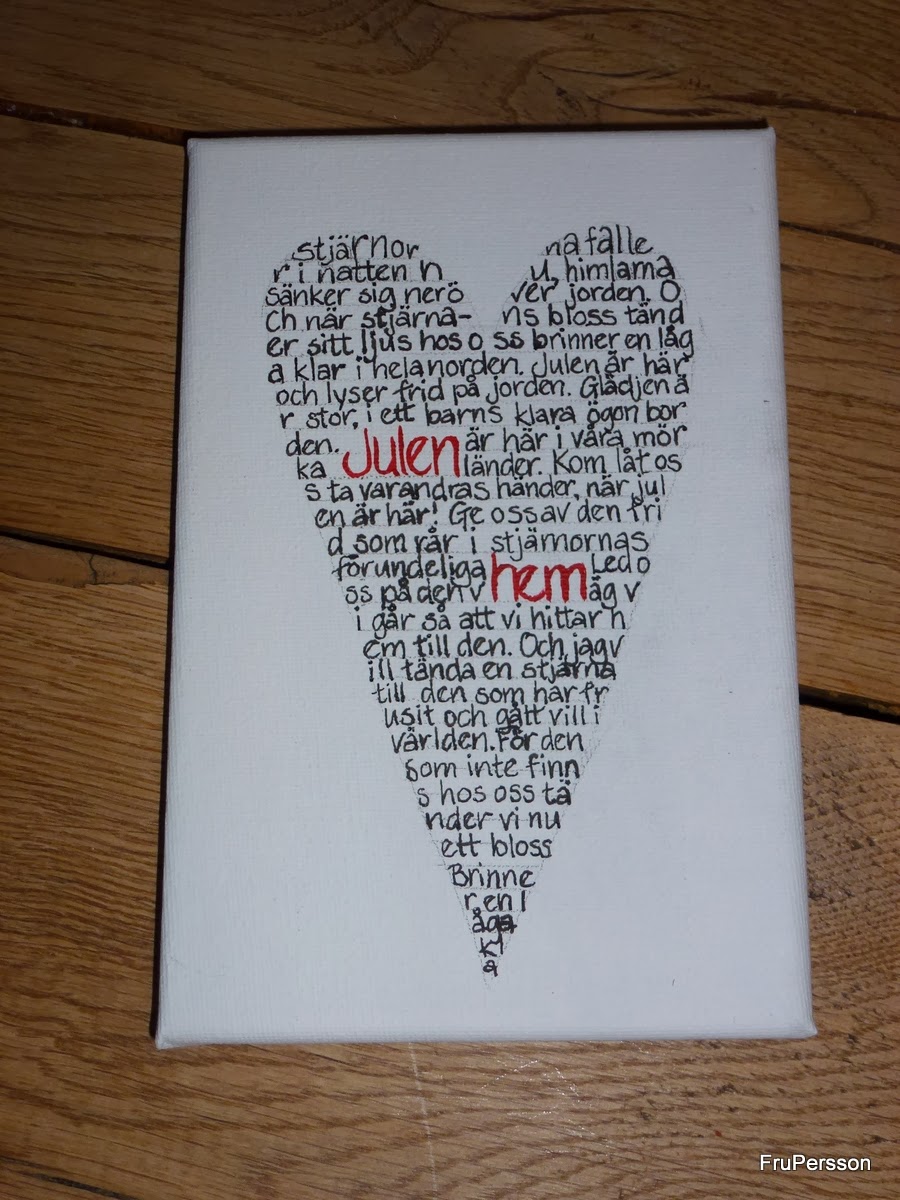 stjärnor na falle
r i natten n u, himlarna
sänker sig nerö ver jorden. O
Ch när stjärna- ns bloss tänd
er sitt ljus hos o ss brinner en låg
a klar i hela norden. Julen är här
och lyser frid på jorden. Glädjen ä
r stor, i ett barns klara ögon bor
den. Julen är här i våra mör
ka länder. Kom låt os
s ta varandras händer, när jul
en är här! Ge oss av den fri
d som rår i stjärnornas
förundeliga hem Led o
ss på den v äg v
i går så att vi hittar h
em till den. Och jag v
ill tända en stjärna
till den som har fr
usit och gått vill i
världen. För den
som inte finn
s hos oss tä
nder vi nu
ett bloss
Brinne
r en l
åga
kl
a
FruPersson